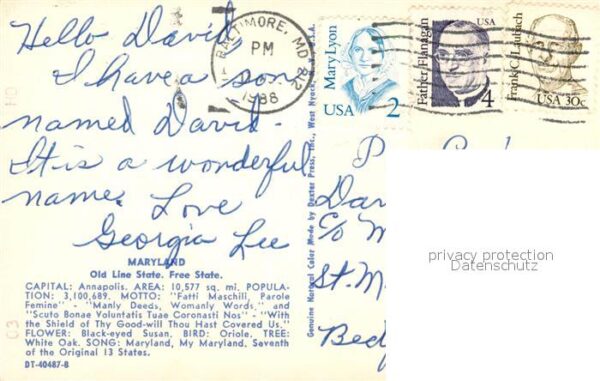 Hello David,
I have a son
named David.
It is a wonderful
name. Love
Georgia Lee
MARYLAND
Old Line State. Free State.
CAPITAL: Annapolis. AREA: 10,577 sq. mi. POPULA-
TION: 3,100,689. MOTTO: "Fatti Maschili, Parole
Femine" - "Manly Deeds, Womanly Words," and
"Scuto Bonae Voluntatis Tuae Coronasti Nos" - "With
the Shield of Thy Good-will Thou Hast Covered Us."
FLOWER: Black-eyed Susan. BIRD: Oriole. TREE:
White Oak. SONG: Maryland, My Maryland. Seventh
of the Original 13 States.
DT-40487-B
Genuine Natural Color Made by Dexter Press, Inc., West Nyack, N.Y. U.S.A.
BALTIMORE, MD 212
PM
1988
Mary Lyon
USA 2
Father Flanagan
USA
4
Frank C. Laubach
USA 30c
c/o M
St. M
privacy protection
Datenschutz